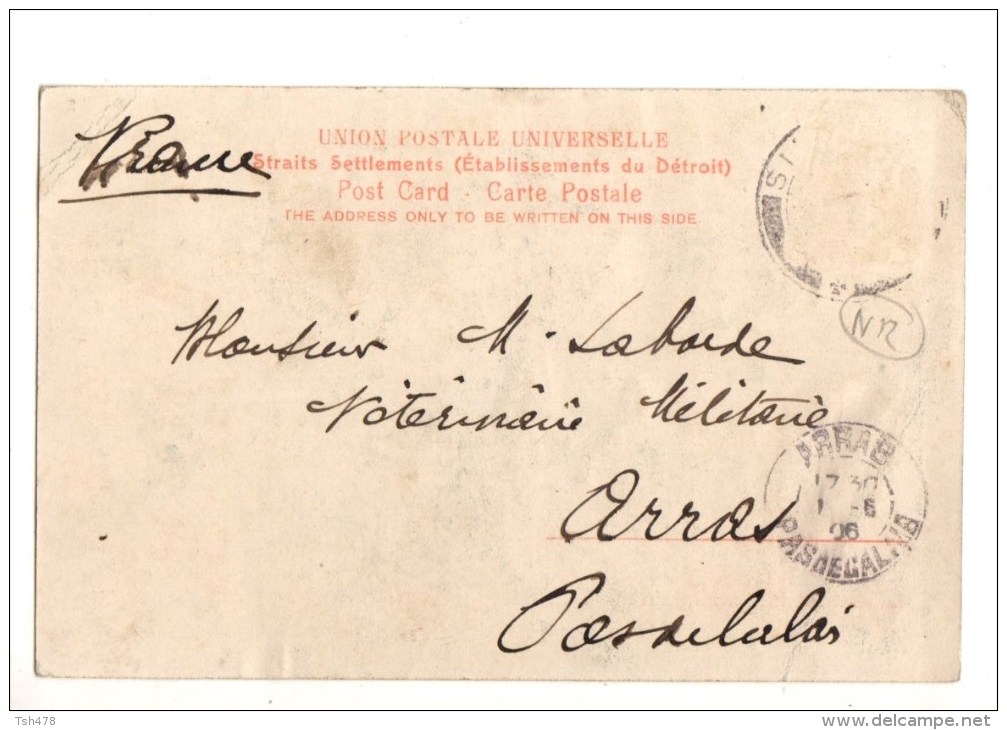 France
UNION POSTALE UNIVERSELLE
Straits Settlements (Établissements du Détroit)
Post Card - Carte Postale
THE ADDRESS ONLY TO BE WRITTEN ON THIS SIDE
NR
Monsieur M. Laborde
Vétérinaire Militaire
Arras
Pas de Calais
ARRAS
17 30
06
PAS DE CALAIS
Tsh478
www.delcampe.net